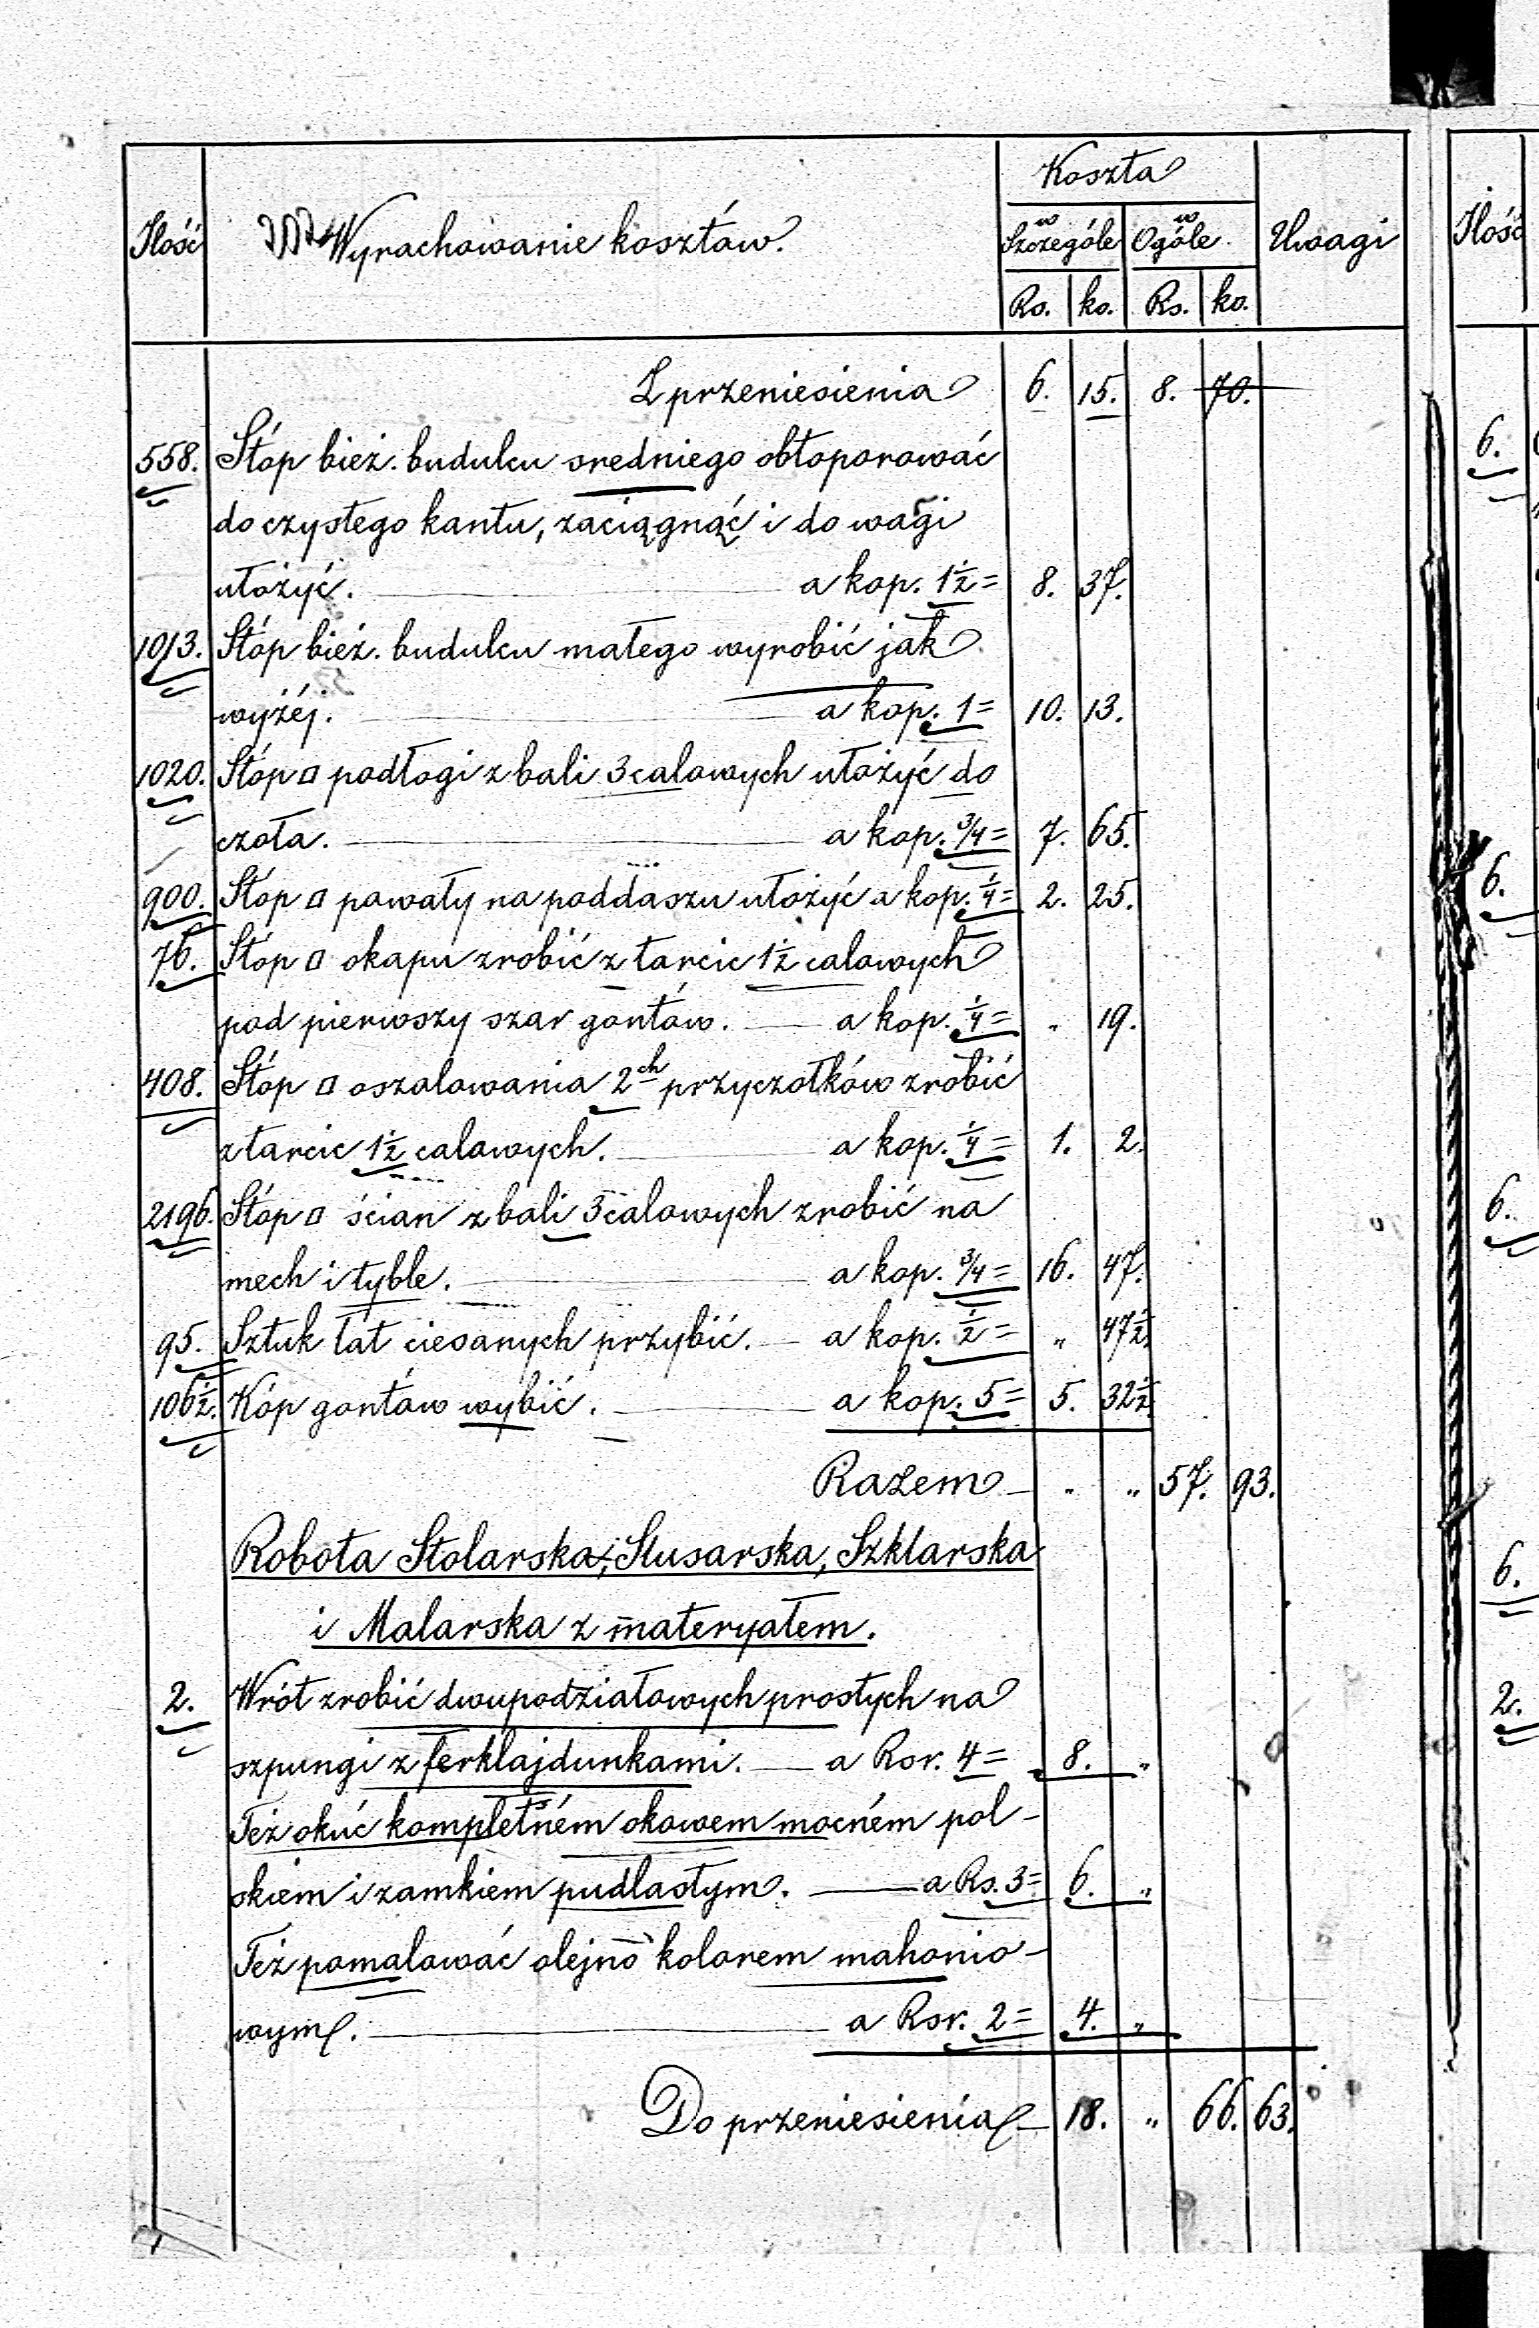 Koszta
Ilość Wyrachowanie kosztów. w Szczególe w Ogóle. Uwagi Ilość
Rs. ko. Rs. ko.
Z przeniesienia 6. 15. 8. 70.
558. Stóp bież. budulcu sredniego obtoporować 6.
do czystego kantu, zaciągnąć i do wagi
ułożyć. a kop. 1½= 8. 37.
1013. Stóp bież. budulcu małego wyrobić jak
wyżéj. a kop. 1= 10. 13.
1020. Stóp □ podłogi z bali 3 calowych ułożyć do
czoła. a kop. ¾= 7. 65.
900. Stóp □ powały na poddaszu ułożyć a kop. ¼= 2. 25. 6.
76. Stóp □ okapu zrobić z tarcic 1½ calowych
pod pierwszy szar gontów. a kop. ¼= " 19.
408. Stóp □ oszalowania 2ch przyczołków zrobić
z tarcic 1½ calowych. a kop. ¼= 1. 2.
2196. Stóp □ ścian z bali 3 calowych zrobić na 6.
mech i tyble. a kop. ¾= 16. 47.
95. Sztuk łat ciesanych przybić. a kop. ½= " 47½
106½. Kóp gontów wybić. a kop. 5= 5. 32½.
Razem " " 57. 93.
Robota Stolarska, Slusarska, Szklarska 6.
i Malarska z materyałem.
2. Wrót zrobić dwupodziałowych prostych na 2.
szpungi z ferklajdunkami. a Rsr. 4= 8. "
Też okuć kompletném okowem mocném pol-
skiem i zamkiem pudlastym. a Rs. 3= 6. "
Też pomalować olejno kolorem mahonio-
wym. a Rsr. 2= 4. "
Do przeniesienia 18. " 66. 63.